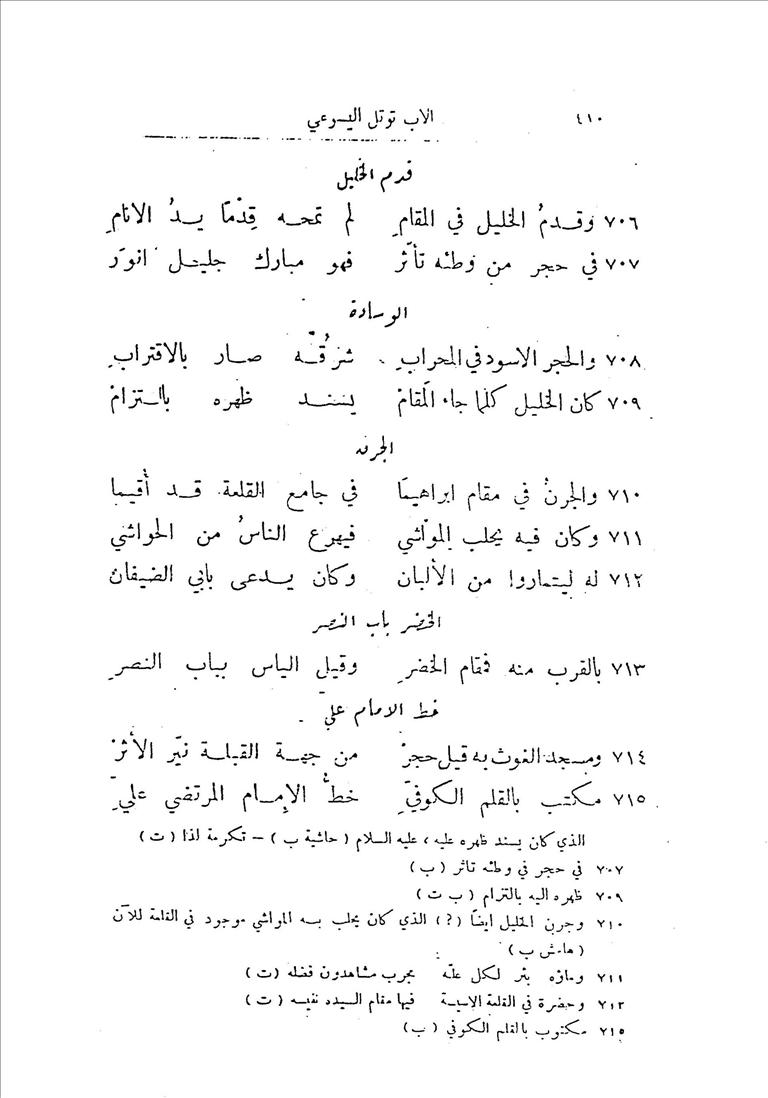 ٤١٠ الاب توتل اليسوعي
قدم الخليل
٧٠٦ وقدمُ الخليل في المقامِ لم تمحه قِدْمًا يدُ الانامِ
٧٠٧ في حجر من وطئه تأثّر فهو مبارك جليل انوَر
الوسادة
٧٠٨ والحجر الاسود في المحرابِ شرفُه صار بالاقترابِ
٧٠٩ كان الخليل كلما جاء المقامْ يسند ظهره بالتزامْ
الجرن
٧١٠ والجرنُ في مقام ابراهيما في جامع القلعة قد أُقيما
٧١١ وكان فيه يحلب المواشي فيهرع الناسُ من الحواشي
٧١٢ له ليتماروا من الألبان وكان يدعى بابي الضيفان
الخضر باب النصر
٧١٣ بالقرب منه فمقام الخضرِ وقيل الياس بباب النصرِ
خط الامام علي
٧١٤ ومسجد الغوث به قيل حجرْ من جهة القبلة نيّر الأثرْ
٧١٥ مكتب بالقلم الكوفيِّ خطُّ الإمام المرتضي عليِّ
الذي كان يسند ظهره عليه ، عليه السلام ( حاشية ب ) – تكرمة لذا ( ت )
٧٠٧ في حجر في وطئه تاثر ( ب )
٧٠٩ ظهره اليه بالتزام ( ب ت )
٧١٠ وجرن الخليل ايضًا ( ؟ ) الذي كان يحلب به المواشي موجود في القلعة للآن
( هامش ب )
٧١١ وماؤه بئر لكل علّه مجرب مشاهدون فضله ( ت )
٧١٣ وحضرة في القلعة فيها مقام السيده نفيسه ( ت )
٧١٥ مكتوب بالقلم الكوفي ( ب )